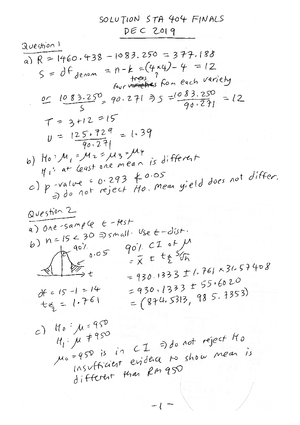 SOLUTION STA 404 FINALS
DEC 2019
Question 1
a) R = 1460.438 - 1083.250 = 377.188
S = df denom = n-k = (4×4) - 4 = 12
four trees? from each variety
or 1083.250/S = 90.271 ⇒ S = 1083.250/90.271 = 12
T = 3+12 = 15
U = 125.729/90.271 = 1.39
b) H0: μ1 = μ2 = μ3 = μ4
H1: at least one mean is different
c) p-value = 0.293 ≮ 0.05
⇒ do not reject H0. Mean yield does not differ.
Question 2
a) one-sample t-test
b) n = 15 < 30 ⇒ small. Use t-dist.
90%
0.05
t
df = 15-1 = 14
t α/2 = 1.761
90% CI of μ
= x̄ ± t α/2 s/√n
= 930.1333 ± 1.761 × 31.57408
= 930.1333 ± 55.6020
= (874.5313, 985.7353)
c) H0: μ = 950
H1: μ ≠ 950
μ0 = 950 is in CI ⇒ do not reject H0
insufficient evidence to show mean is
different than RM 950
-1-